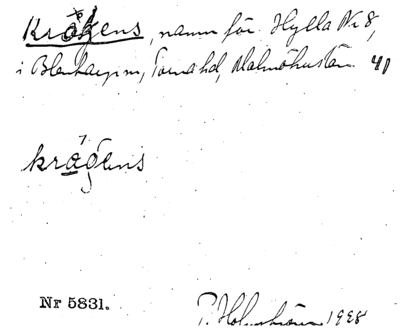 Krågens, namn för Hylla Nr 8,
i Blentarp sn, Torna hd, Malmöhus län. 41
7
krågens
Nr 5831.
1928